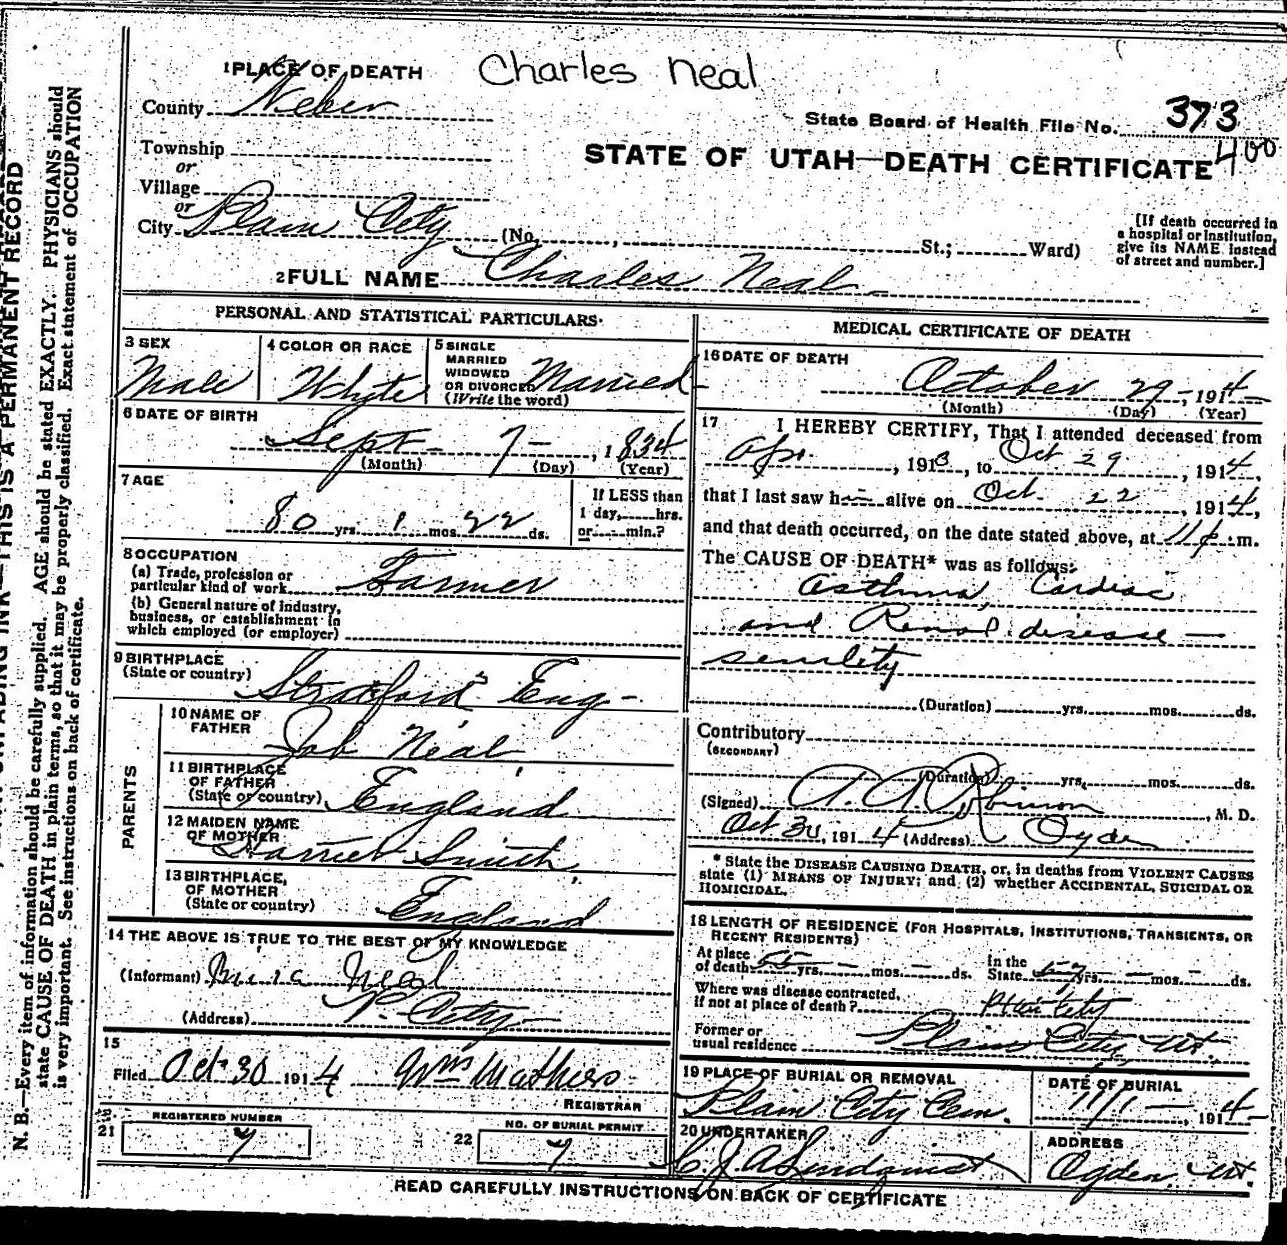 Charles Neal
1 PLACE OF DEATH
County Weber
State Board of Health File No. 373
400
Township
or
Village
or
City Plain City (No. , St.; Ward)
STATE OF UTAH—DEATH CERTIFICATE
[If death occurred in
a hospital or institution,
give its NAME instead
of street and number.]
2 FULL NAME Charles Neal
PERSONAL AND STATISTICAL PARTICULARS
3 SEX
Male
4 COLOR OR RACE
Whyte
5 SINGLE
MARRIED
WIDOWED
OR DIVORCED
(Write the word)
Married
6 DATE OF BIRTH
Sept - 7 - , 1834
(Month) (Day) (Year)
7 AGE
80 yrs. 1 mos. 22 ds.
If LESS than
1 day, hrs.
or min.?
8 OCCUPATION
(a) Trade, profession or
particular kind of work Farmer
(b) General nature of industry,
business, or establishment in
which employed (or employer)
9 BIRTHPLACE
(State or country)
Stratford Eng -
PARENTS
10 NAME OF
FATHER
Job Neal
11 BIRTHPLACE
OF FATHER
(State or country) England
12 MAIDEN NAME
OF MOTHER
Harriet Smith
13 BIRTHPLACE,
OF MOTHER
(State or country) England
14 THE ABOVE IS TRUE TO THE BEST OF MY KNOWLEDGE
(Informant) Neal
(Address) P. City
15
Filed Oct 30 1914 Wm Mathers
REGISTRAR
21 REGISTERED NUMBER
7
22 NO. OF BURIAL PERMIT
7
MEDICAL CERTIFICATE OF DEATH
16 DATE OF DEATH
October 29 -, 1914
(Month) (Day) (Year)
17 I HEREBY CERTIFY, That I attended deceased from
Apr. , 1913, to Oct 29 , 1914,
that I last saw h alive on Oct. 22 , 1914,
and that death occurred, on the date stated above, at 11 p. m.
The CAUSE OF DEATH* was as follows:
Asthma, Cardiac
and Renal disease —
senility
(Duration) yrs. mos. ds.
Contributory
(SECONDARY)
(Duration) yrs. mos. ds.
(Signed) Robinson, M. D.
Oct 30, 1914 (Address) Ogden
* State the DISEASE CAUSING DEATH, or, in deaths from VIOLENT CAUSES
state (1) MEANS OF INJURY; and (2) whether ACCIDENTAL, SUICIDAL OR
HOMICIDAL.
18 LENGTH OF RESIDENCE (FOR HOSPITALS, INSTITUTIONS, TRANSIENTS, OR
RECENT RESIDENTS)
At place
of death 55 yrs. — mos. — ds.
In the
State yrs. — mos. — ds.
Where was disease contracted,
if not at place of death? Plain City
Former or
usual residence Plain City, Ut.
19 PLACE OF BURIAL OR REMOVAL
Plain City Cem.
DATE OF BURIAL
11/1 — , 1914 -
20 UNDERTAKER
C. J. A. Lindquist
ADDRESS
Ogden Ut.
READ CAREFULLY INSTRUCTIONS ON BACK OF CERTIFICATE
THIS IS A PERMANENT RECORD
N. B.—Every item of information should be carefully supplied. AGE should be stated EXACTLY. PHYSICIANS should
state CAUSE OF DEATH in plain terms, so that it may be properly classified. Exact statement of OCCUPATION
is very important. See instructions on back of certificate.